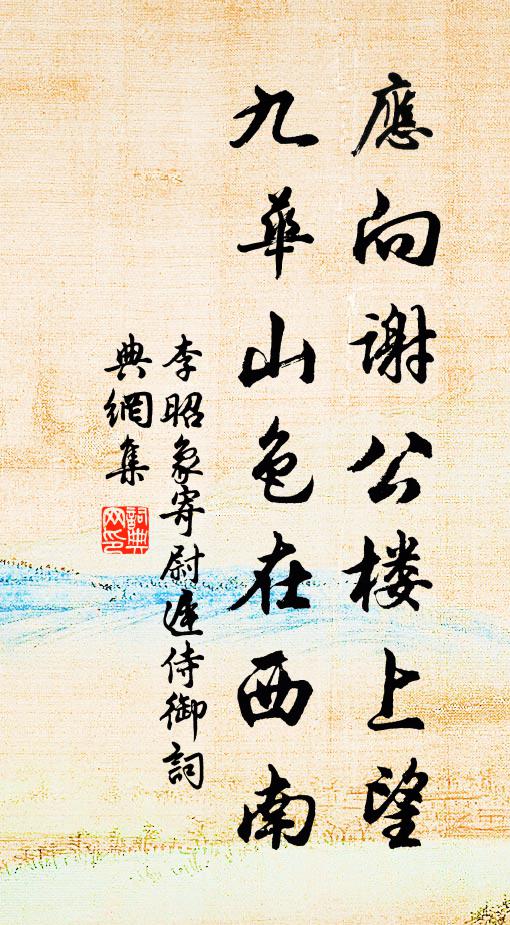 應向谢公楼上望
九華山色在西南
李昭象寄尉遲侍御詞
典網集
詞典
网印